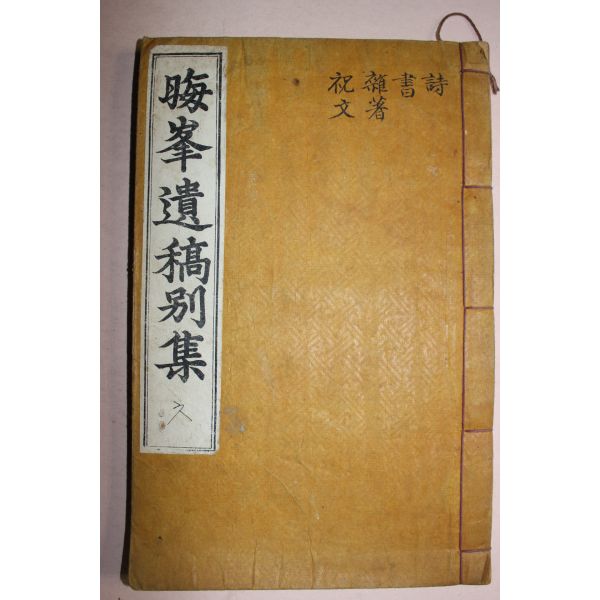 詩
書
雜著
祝文
晦峯遺稿別集